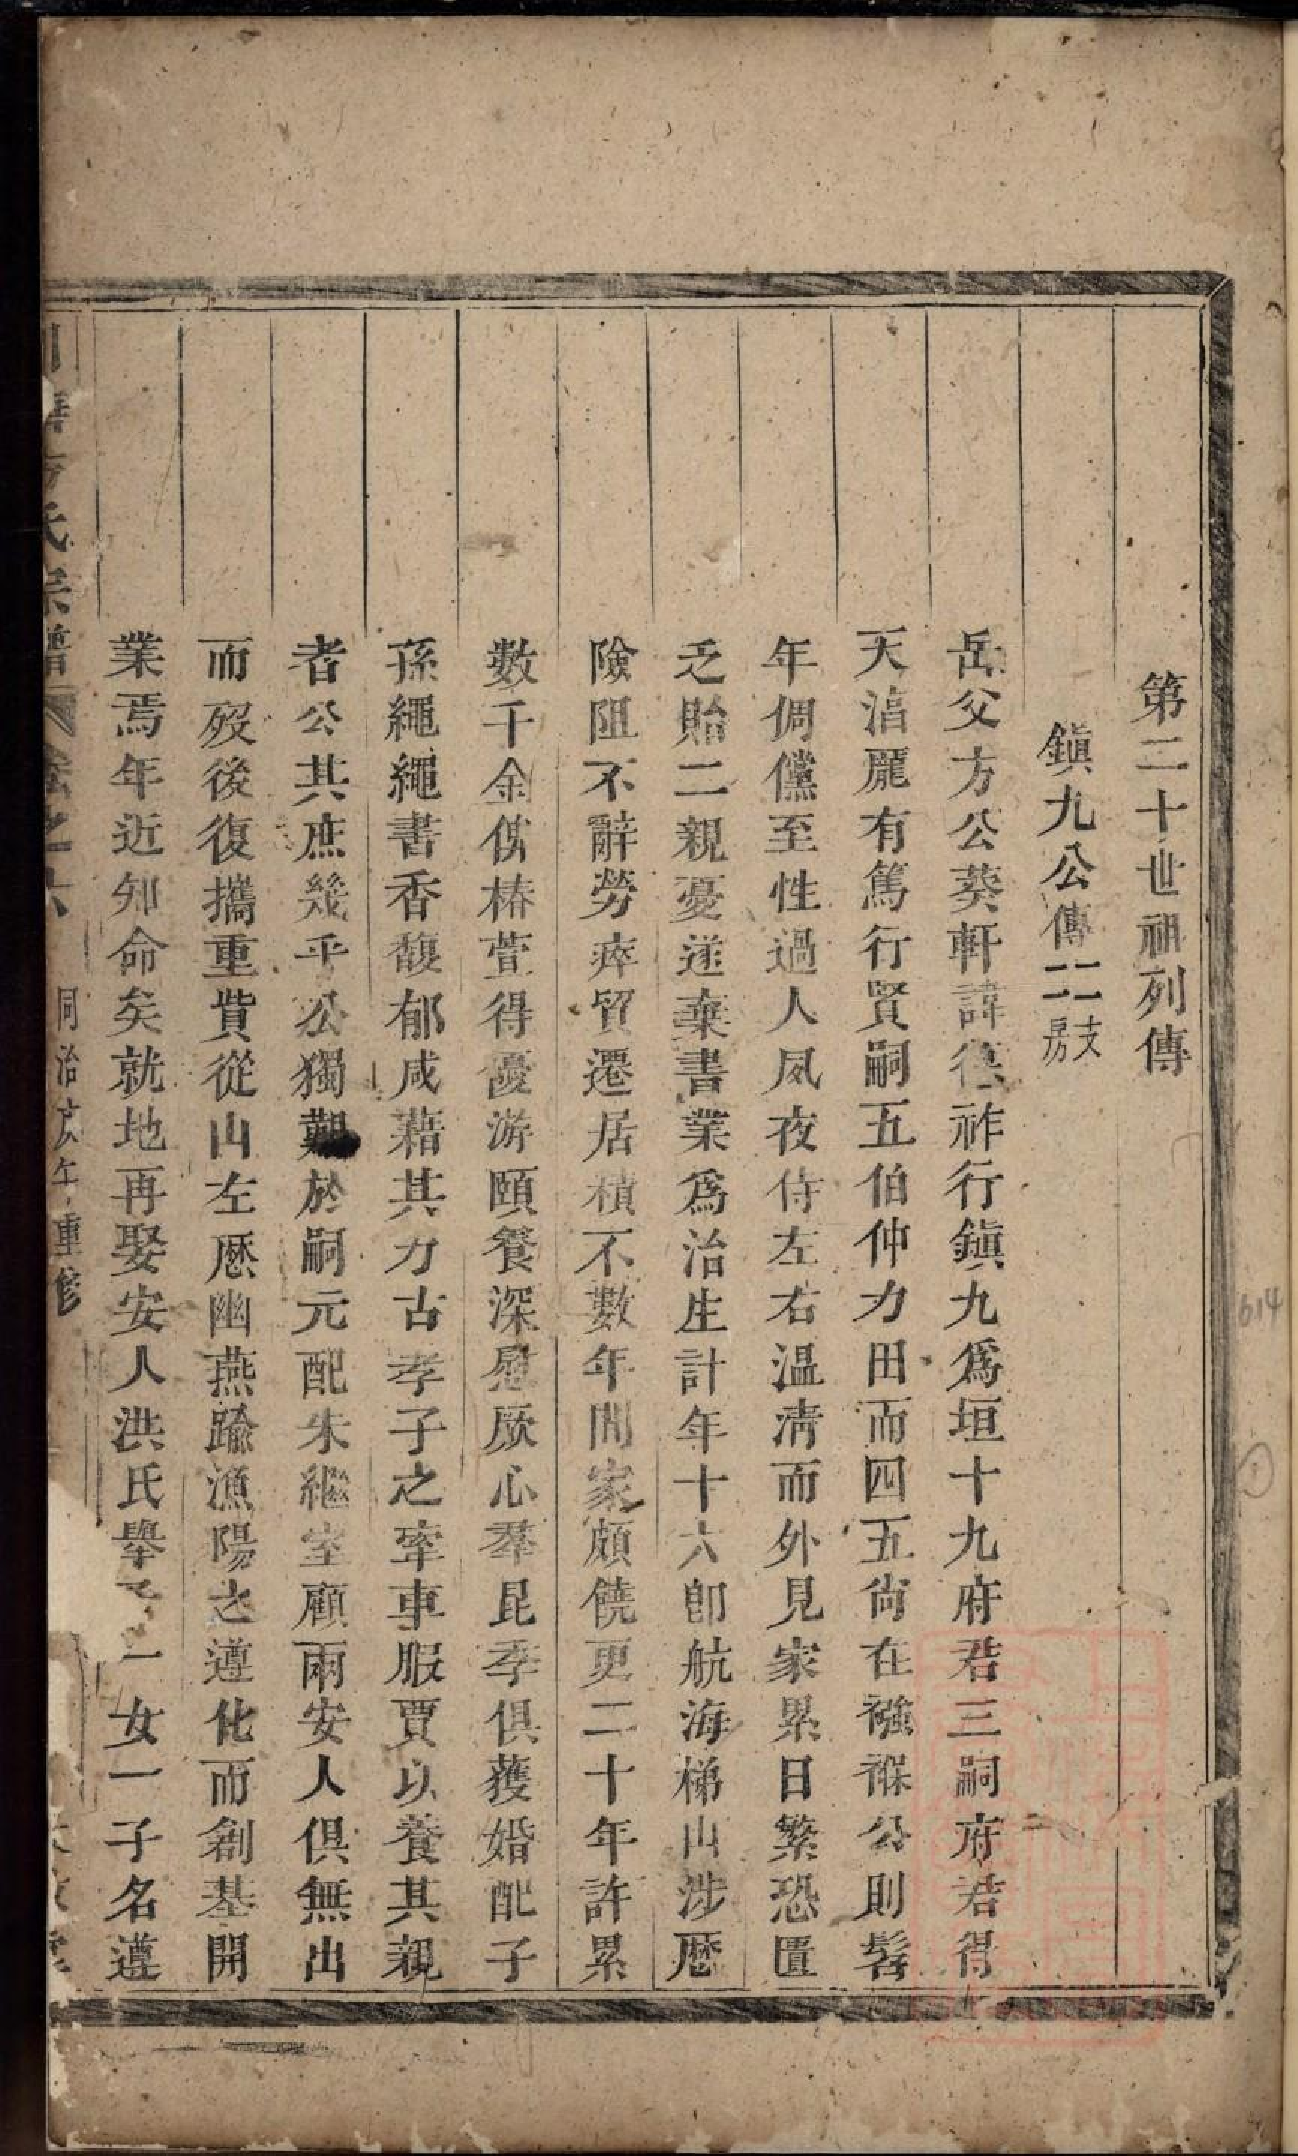 第二十世祖列傳
鎮九公傳二支二房
岳父方公葵軒諱德祚行鎮九爲垣十九府君三嗣府君得
天滀龎有篤行賢嗣五伯仲力田而四五尙在襁褓公則髫
年倜儻至性過人夙夜侍左右温凊而外見家累日繁恐匱
乏貽二親憂遂棄書業爲治生計年十六卽航海梯山涉厯
險阻不辭勞瘁貿遷居積不數年間家頗饒更二十年許累
數千金俾椿萱得優游頤養深慰厥心羣昆季俱獲婚配子
孫繩繩書香馥郁咸藉其力古孝子之牽車服賈以養其親
者公其庶幾乎公獨艱於嗣元配朱繼室顧兩安人俱無出
而歿後復攜重貲從山左厯幽燕踰漁陽之遵化而創基開
業焉年近知命矣就地再娶安人洪氏舉子一女一子名遵
氏宗譜 卷之六 同治庚午重修